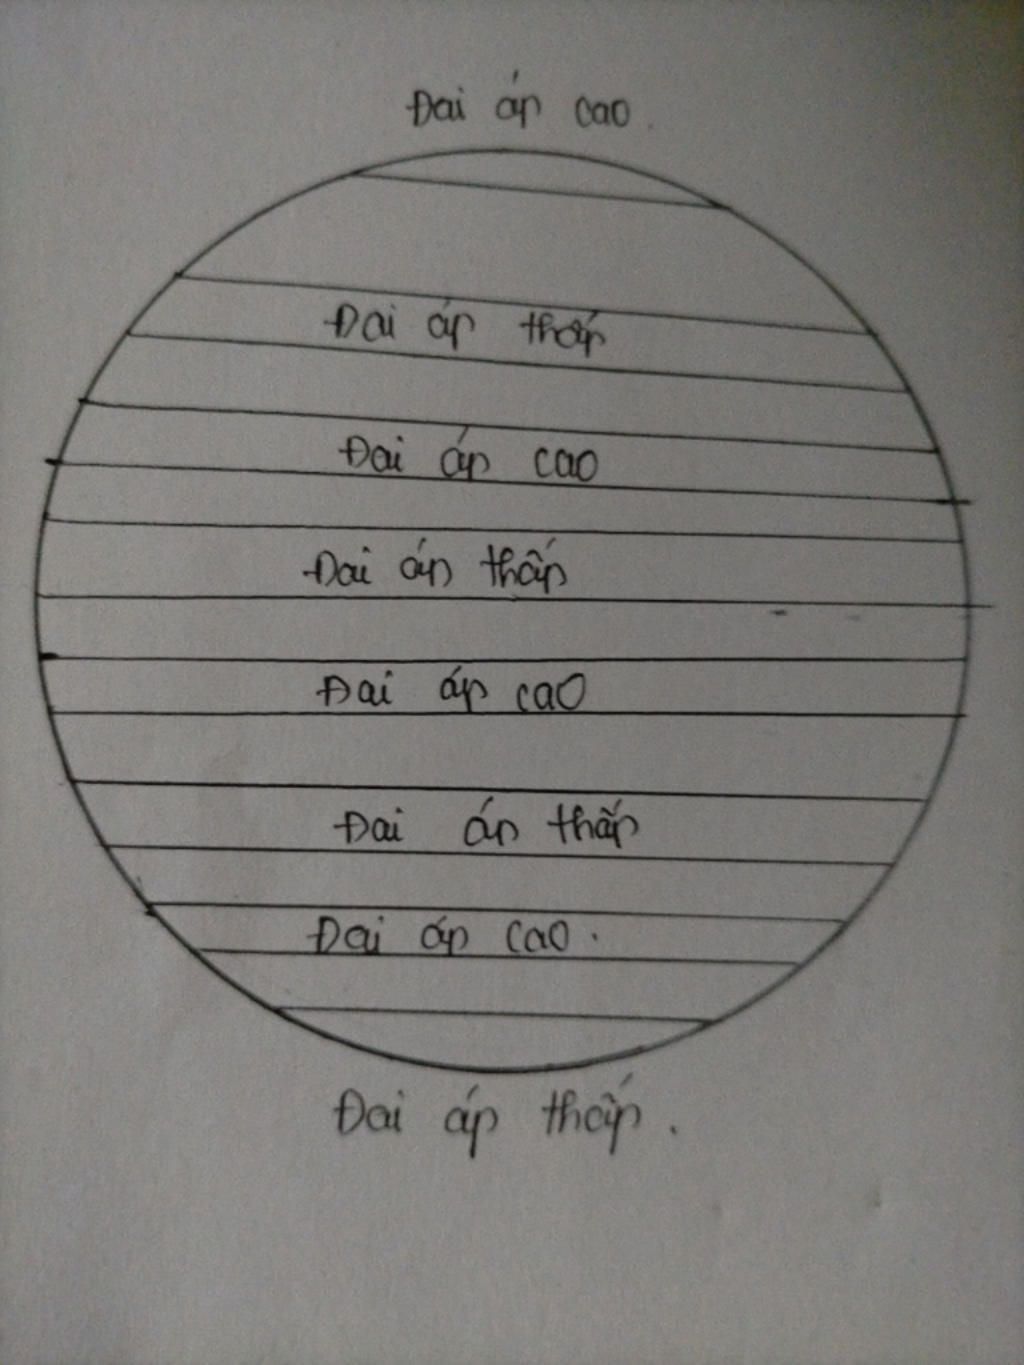 Đai áp cao.
Đai áp thấp
Đai áp cao
Đai áp thấp
Đai áp cao
Đai áp thấp
Đai áp cao.
Đai áp thấp.